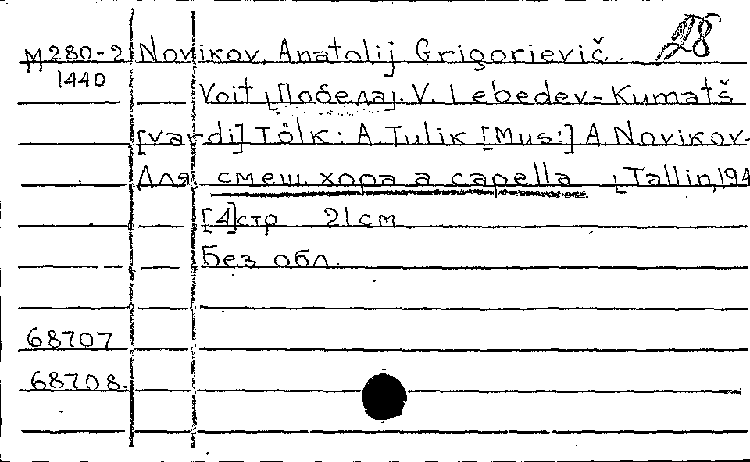 28
M280-2 Novikov, Anatolij Grigorievič.
1440
Voit [Победа]. V. Lebedev-Kumatš
[värdi] Tõlk: A. Tulik [Mus:] A. Novikov.
Для смеш. хора a capella [Tallin, 194
[4]стр 21см
Без обл.
68707
68708.